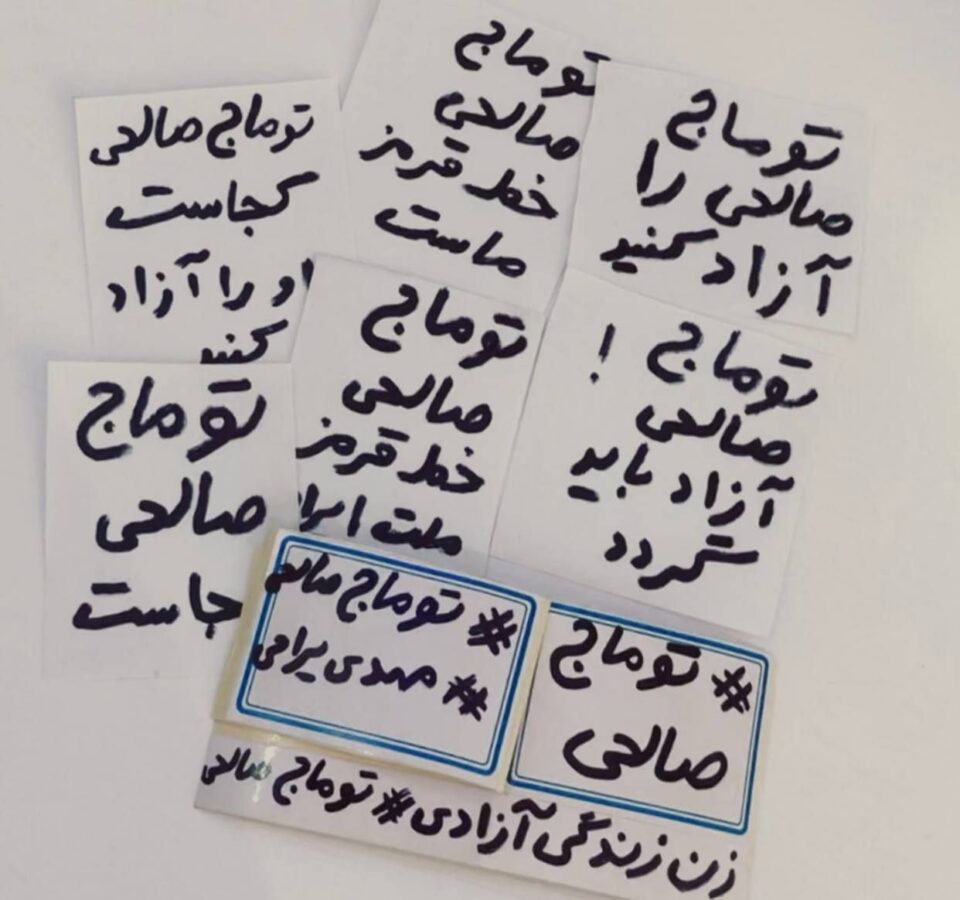 توماج
صالحی را
آزاد کنید
توماج
صالحی
خط قرمز
ماست
توماج صالحی
کجاست
او را آزاد
کنید
توماج !
صالحی
آزاد باید
گردد
توماج
صالحی
خط قرمز
ملت ایرا
توماج
صالحی
جاست
# توماج
صالحی
# توماج صالحی
# مهدی یراحی
زن زندگی آزادی # توماج صالحی